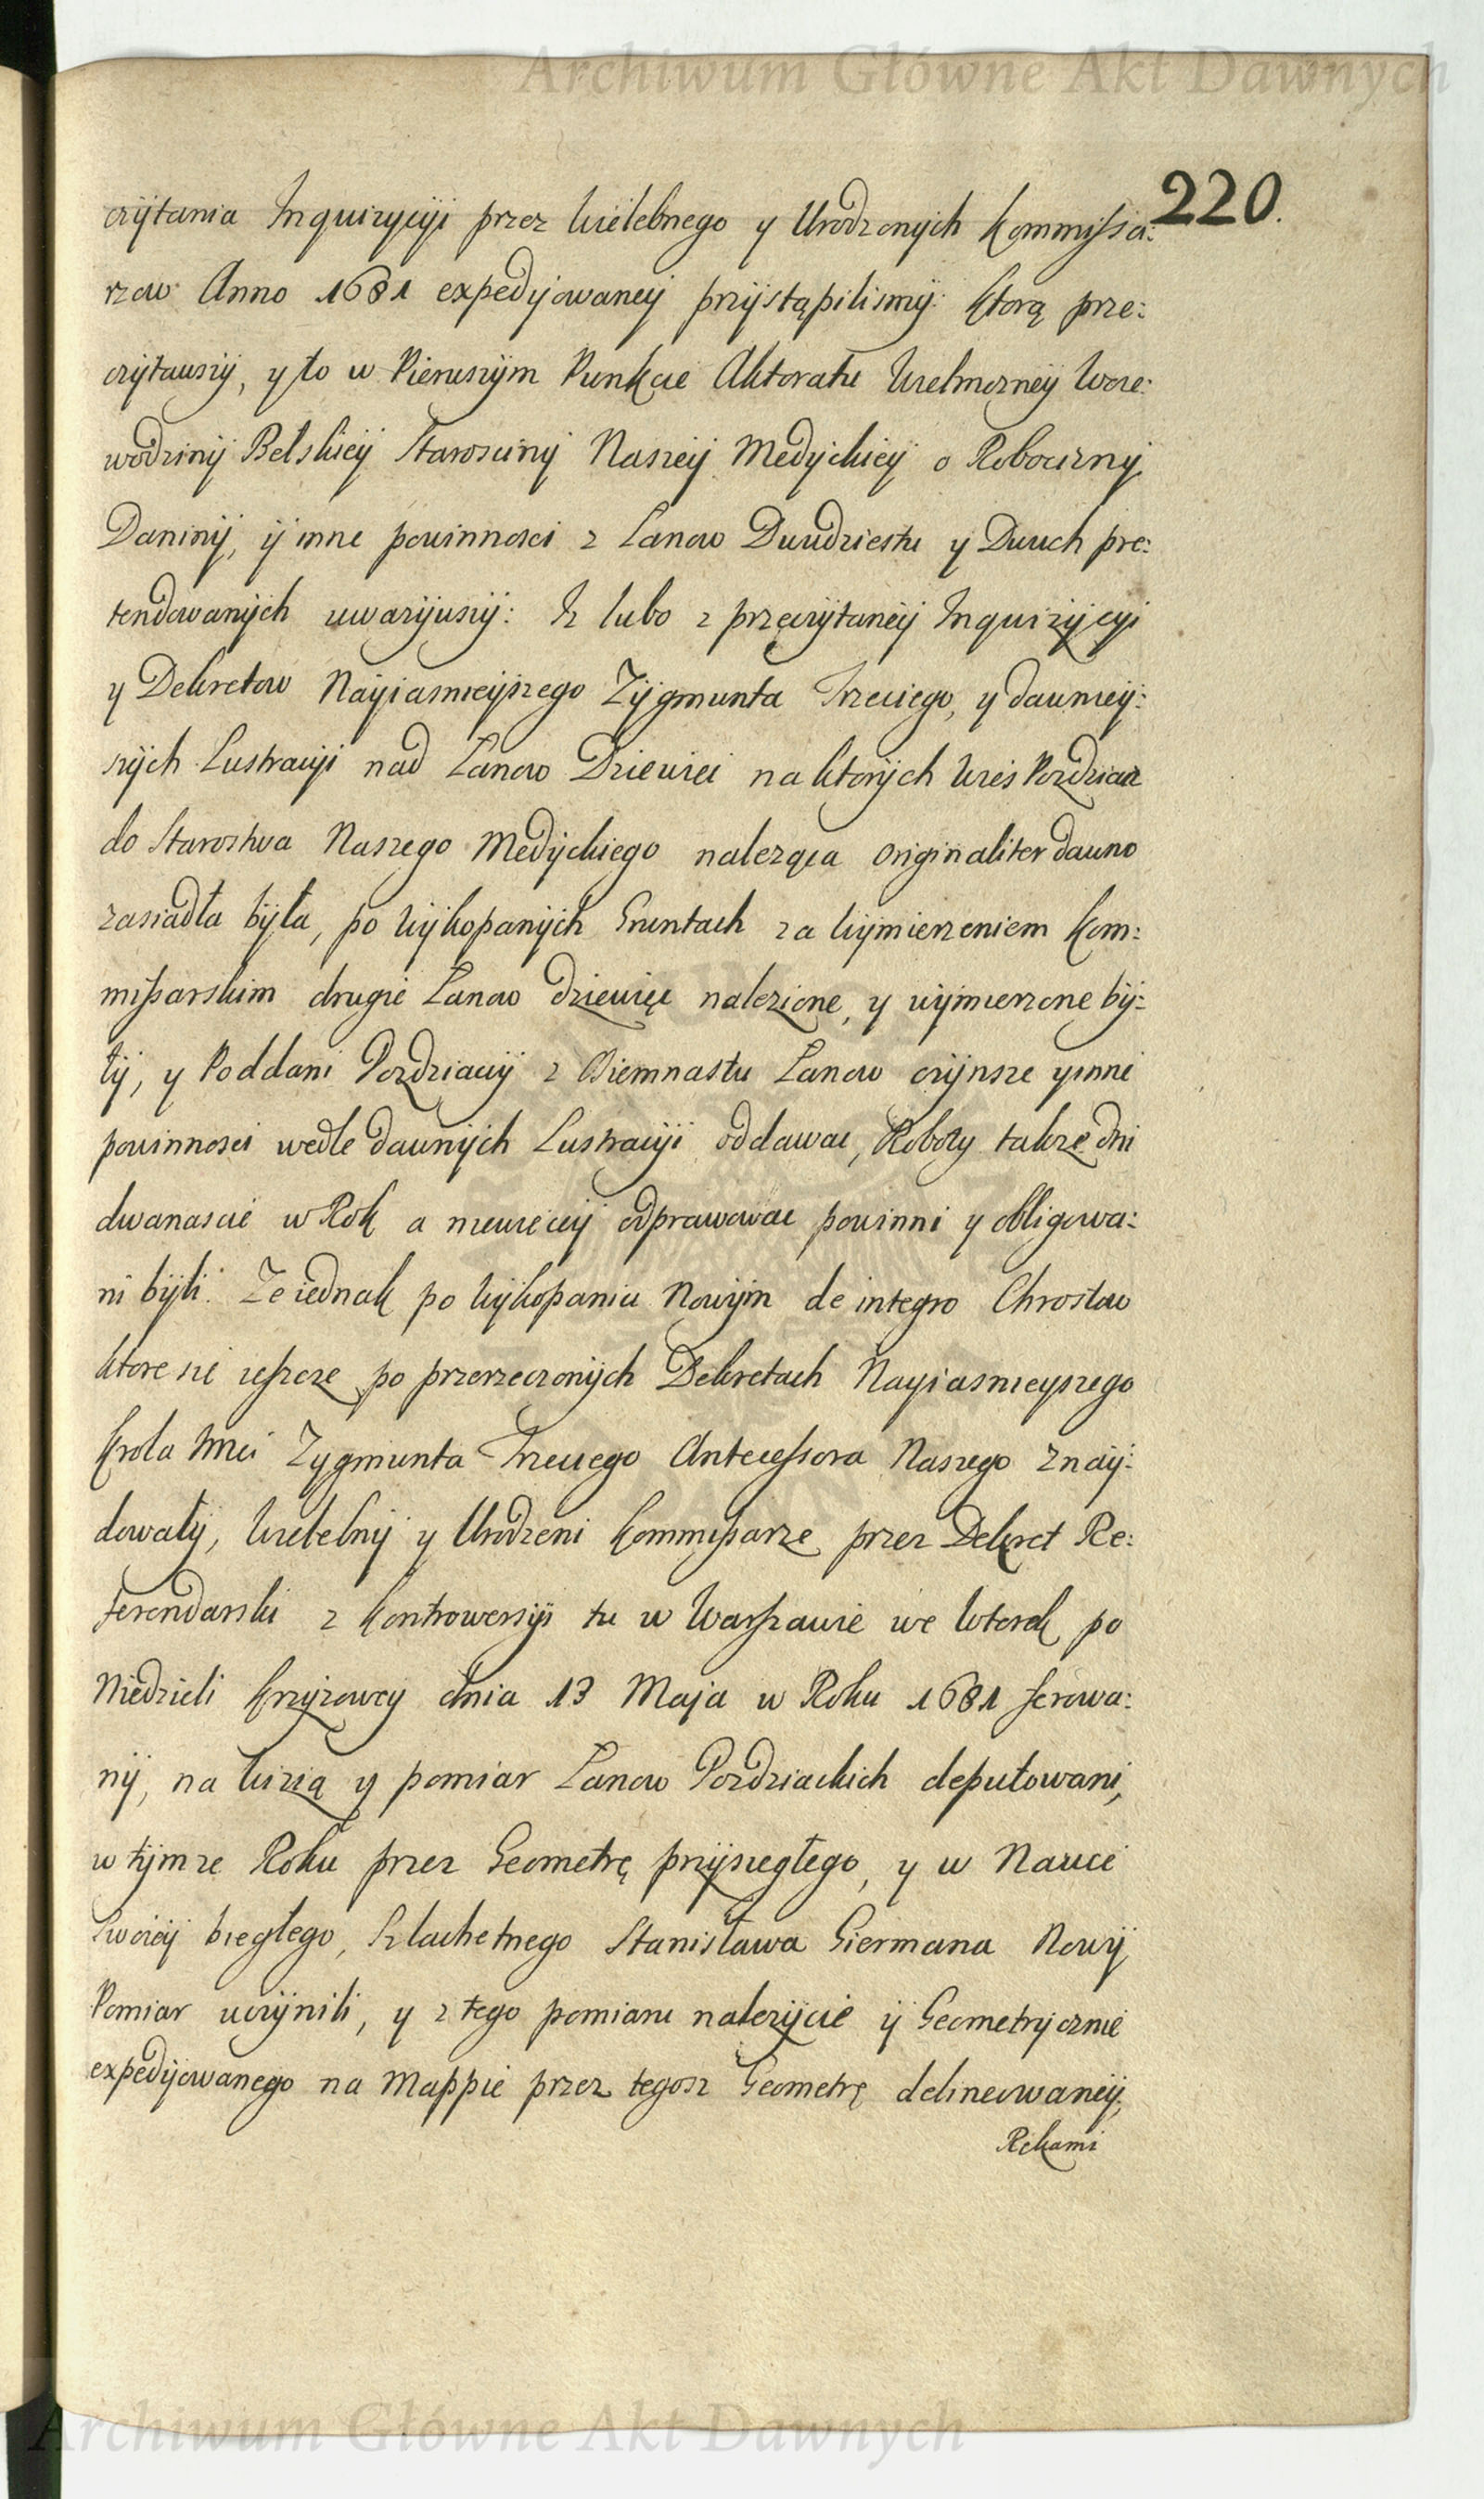 Archiwum Główne Akt Dawnych
220.
czÿtania Inquizycÿi przez Wielebnego y Urodzonÿch Kommissa:
rzow Anno 1681 expedÿowaneÿ przÿstąpilismÿ: ktorą prze:
czÿtawszÿ, y to w Pierwszÿm Punkcie Aktoratu Wielmozneÿ Woie:
wodzinÿ Belskieÿ Staroscinÿ Naszeÿ Medÿckieÿ o Robociznÿ
Daninÿ, ÿ inne powinnosci z Łanow Dwudziestu y Dwuch pre:
tendowanÿch uwazÿwszÿ: Iz lubo z przeczÿtaneÿ Inquizÿcyi
y Dekretow Naÿiasnieÿszego Zÿgmunta Trzeciego, y dawnieÿ:
szÿch Lustracÿi nad Łanow Dziewięć na ktorÿch Wieś Pozdziacz
do Starostwa Naszego Medÿckiego naleząca originaliter dawno
zasiadła bÿła, po Wÿkopanÿch Gruntach za Wÿmierzeniem Kom:
missarskim drugie Łanow dziewięc nalezione, y wÿmierzone bÿ:
łÿ, y Poddani Pozdziaccÿ z Osiemnastu Łanow czÿnsze y inne
powinnosci wedle dawnÿch Lustracÿi oddawac, Roboty takze dni
dwanascie w Rok a niewiecey odprawowac powinni y obligowa:
ni bÿli. Ze iednak po Wÿkopaniu Nowÿm de integro Chrostow
ktore sie ieszcze po przerzeczonÿch Dekretach Nayiasnieyszego
Krola Imci Zygmunta Trzeciego Antecessora Naszego znaÿ:
dowałÿ, Wielebnÿ y Urodzeni Kommissarze przez Dekret Re:
ferendarski z Kontrowersÿi tu w Warszawie we Wtorek po
Niedzieli Krzÿzowey dnia 13 Maja w Roku 1681 ferowa:
nÿ, na Wizią y pomiar Łanow Pozdziackich deputowani,
w tÿmze Roku przez Geometrę przÿsięgłego, y w Nauce
Swoieÿ biegłego, Szlachetnego Stanisława Giermana Nowÿ
Pomiar uczÿnili, y z tego pomiaru nalezÿcie ÿ Geometrÿcznie
expedÿowanego na Mappie przez tegosz Geometrę delineowaneÿ,
Rekami
Archiwum Główne Akt Dawnych